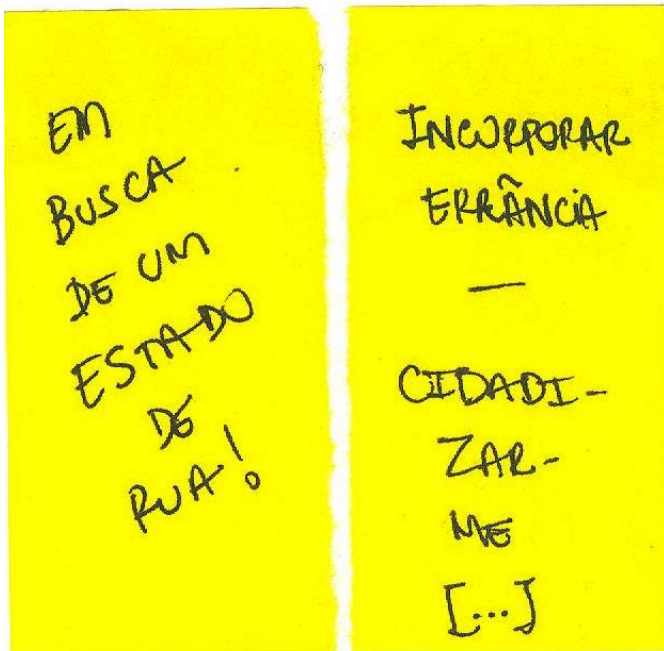 EM
BUSCA
DE UM
ESTADO
DE
RUA!
INCORPORAR
ERRÂNCIA
—
CIDADI-
ZAR-
ME
[...]